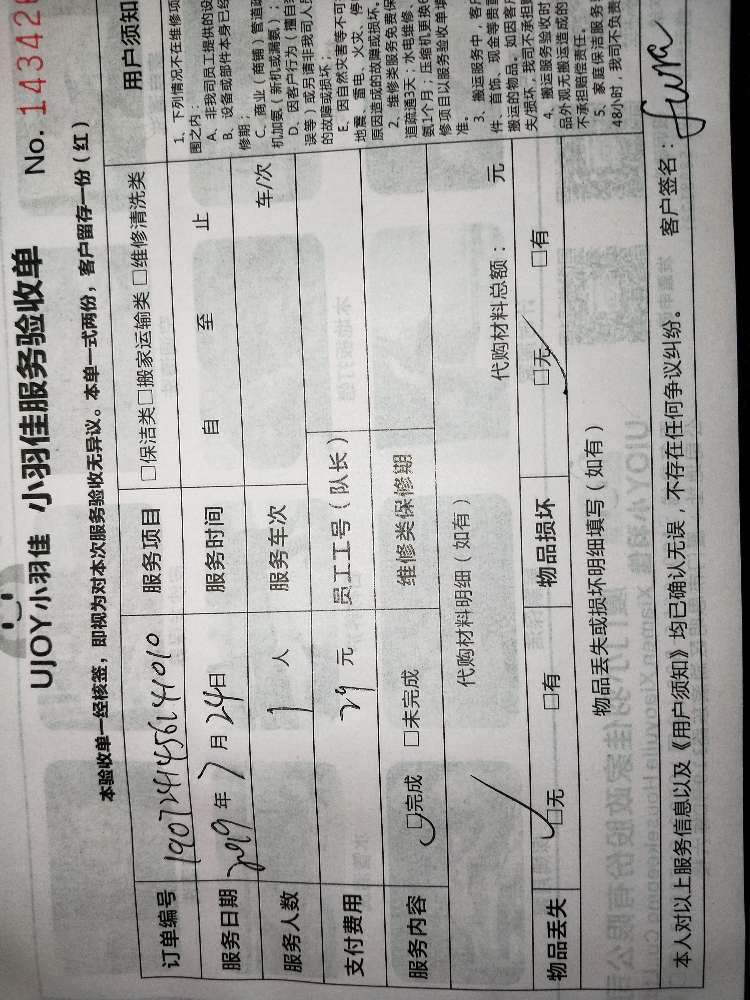 UJOY小羽佳 小羽佳服务验收单 No. 143426
本验收单一经核签，即视为对本次服务验收无异议。本单一式两份，客户留存一份（红）
订单编号 190724145614010 服务项目 □保洁类□搬家运输类 □维修清洗类
服务日期 2019 年 7 月 24日 服务时间 自 至 止
服务人数 1 人 服务车次 车/次
支付费用 29 元 员工工号（队长）
服务内容 □完成 □未完成 维修类保修期
代购材料明细（如有） 代购材料总额： 元
物品丢失 □无 □有 物品损坏 □无 □有
物品丢失或损坏明细填写（如有）
本人对以上服务信息以及《用户须知》均已确认无误，不存在任何争议纠纷。 客户签名：
用户须知
1、下列情况不在维修项
围之内：
A、非我司员工提供的设
B、设备或部件本身已经
修期；
C、商业（商铺）管道疏
机加氨（新机或漏氨）；
D、因客户行为（擅自
误等）或另请非我司人员
的故障或损坏；
E、因自然灾害等不可
地震、雷电、火灾、停
原因造成的故障或损坏。
2、维修类服务免费保
道疏通3天；水电维修、
氨1个月；压缩机更换6
修项目以服务验收单填
准。
3、搬运服务中，客户
件、首饰、现金等贵重
搬运的物品。如因客户
失/损坏，我司不承担赔
4、搬运服务验收时
品外观无搬运造成的
不承担赔偿责任。
5、家庭保洁服务
48小时，我司不负责